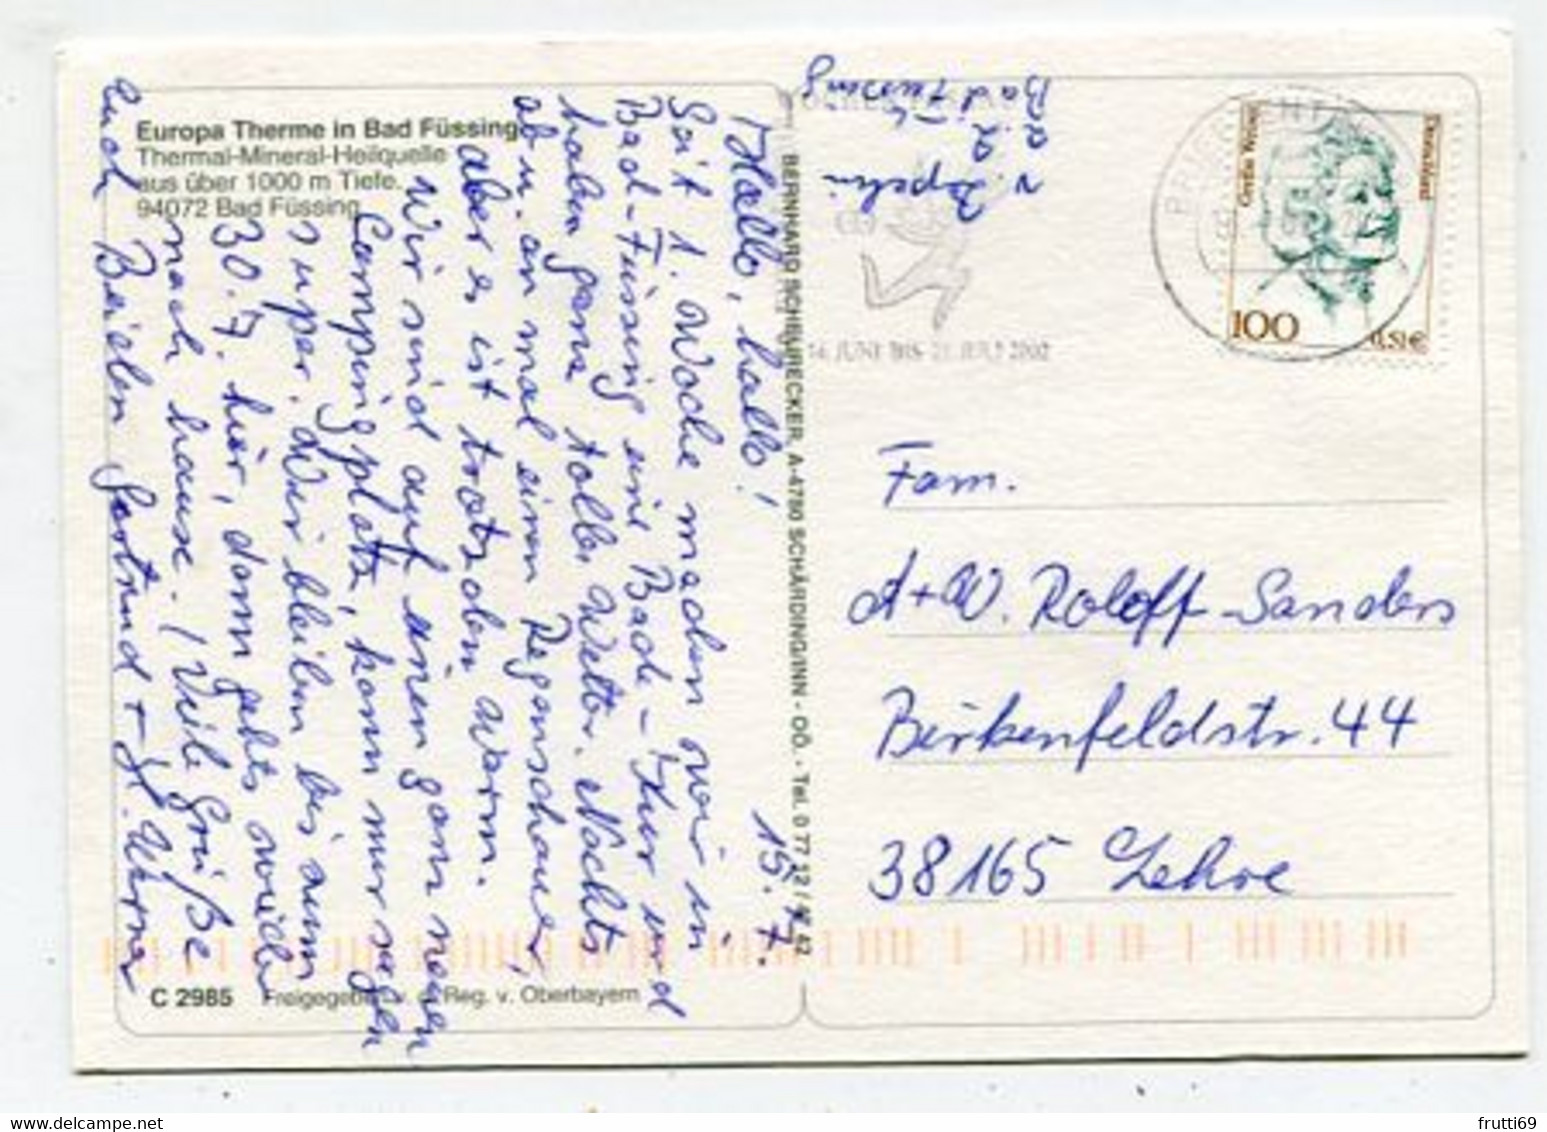 Europa Therme in Bad Füssing
Thermal-Mineral-Heilquelle
aus über 1000 m Tiefe.
94072 Bad Füssing
15.7.
Hallo, hallo!
Seit 1. Woche machen wir in
Bad-Füssing eine Bade-Kur und
haben ganz tolles Wetter. Nachts
ab u. an mal einen Regenschauer,
aber es ist trotzdem warm.
Wir sind auf einen ganz neuen
Campingplatz, kann nur sagen
super. Wir bleiben bis zum
30.7. hier, dann gehts wieder
nach hause. Viele Grüße
Euch Beiden Gertrud + H. Werner
C 2985 Freigegeben v. d. Reg. v. Oberbayern
BERNHARD SCHEURECKER, A-4780 SCHÄRDING/INN - OÖ. - Tel. 0 77 12 /
z. Zt.
Bad Füssing
14. JUNI BIS 21. JULI 2002
Gräfin Wolff
Deutschland
100
0,51€
Fam.
A+W. Roloff-Sanders
Birkenfeldstr. 44
38165 Lehre
frutti69